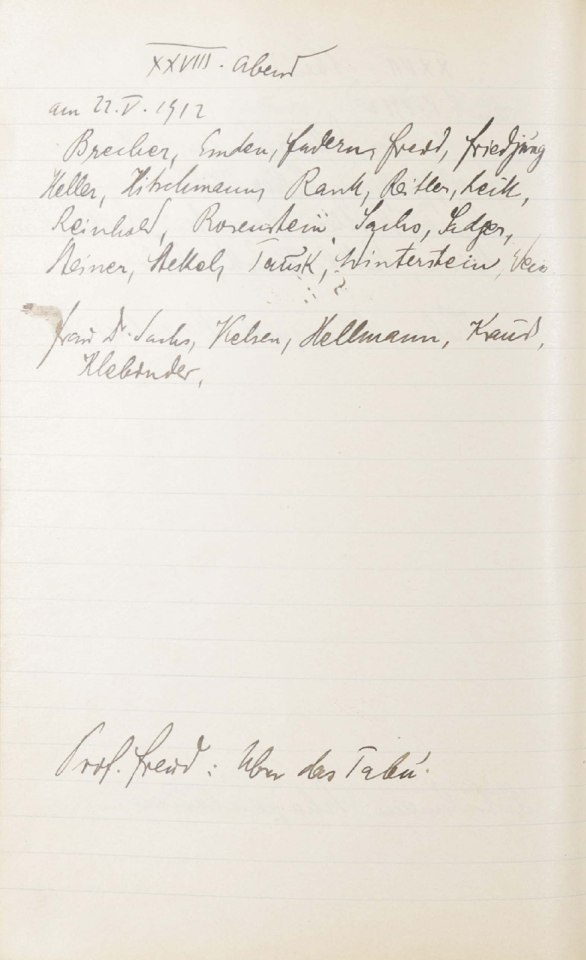 XXVIII. Abend
am 22.V.1912
Brecher, Emden, Federn, Freud, Friedjung
Heller, Hitschmann, Rank, Reitler, Reik,
Reinhold, Rosenstein, Sachs, Sadger,
Steiner, Stekel, Tausk, Winterstein,
Frau Dr. Sachs, Kelsen, Hellmann, Kraus,
Prof. Freud: Über das Tabu.